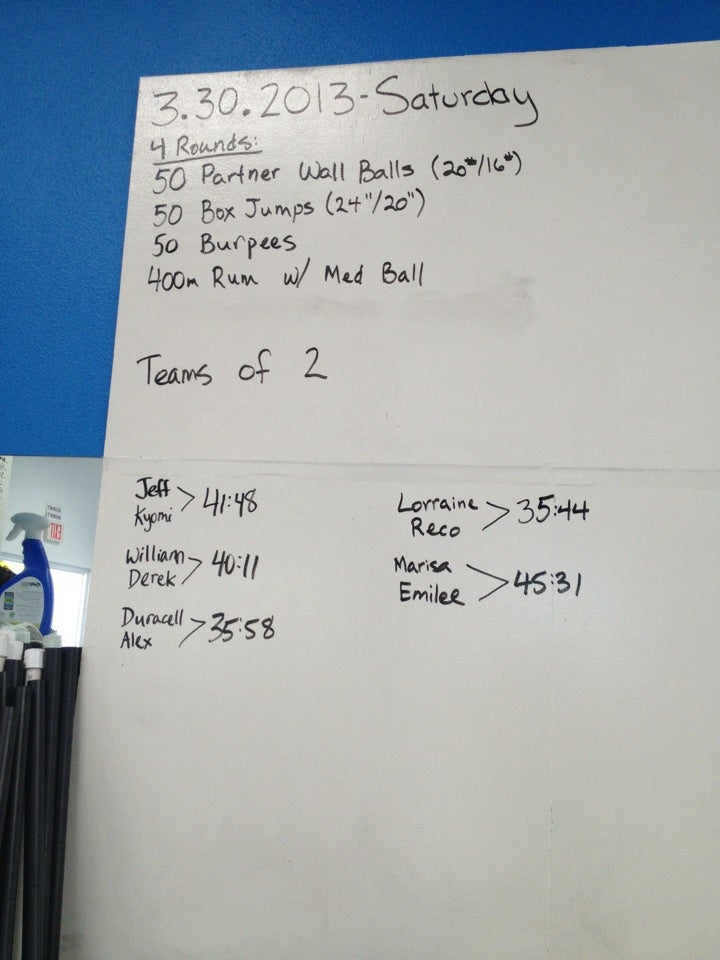 3.30.2013-Saturday
4 Rounds:
50 Partner Wall Balls (20#/16#)
50 Box Jumps (24"/20")
50 Burpees
400m Run w/ Med Ball
Teams of 2
Jeff
Kyomi > 41:48
William
Derek > 40:11
Duracell
Alex > 35:58
Lorraine
Reco > 35:44
Marisa
Emilee > 45:31
EXIT